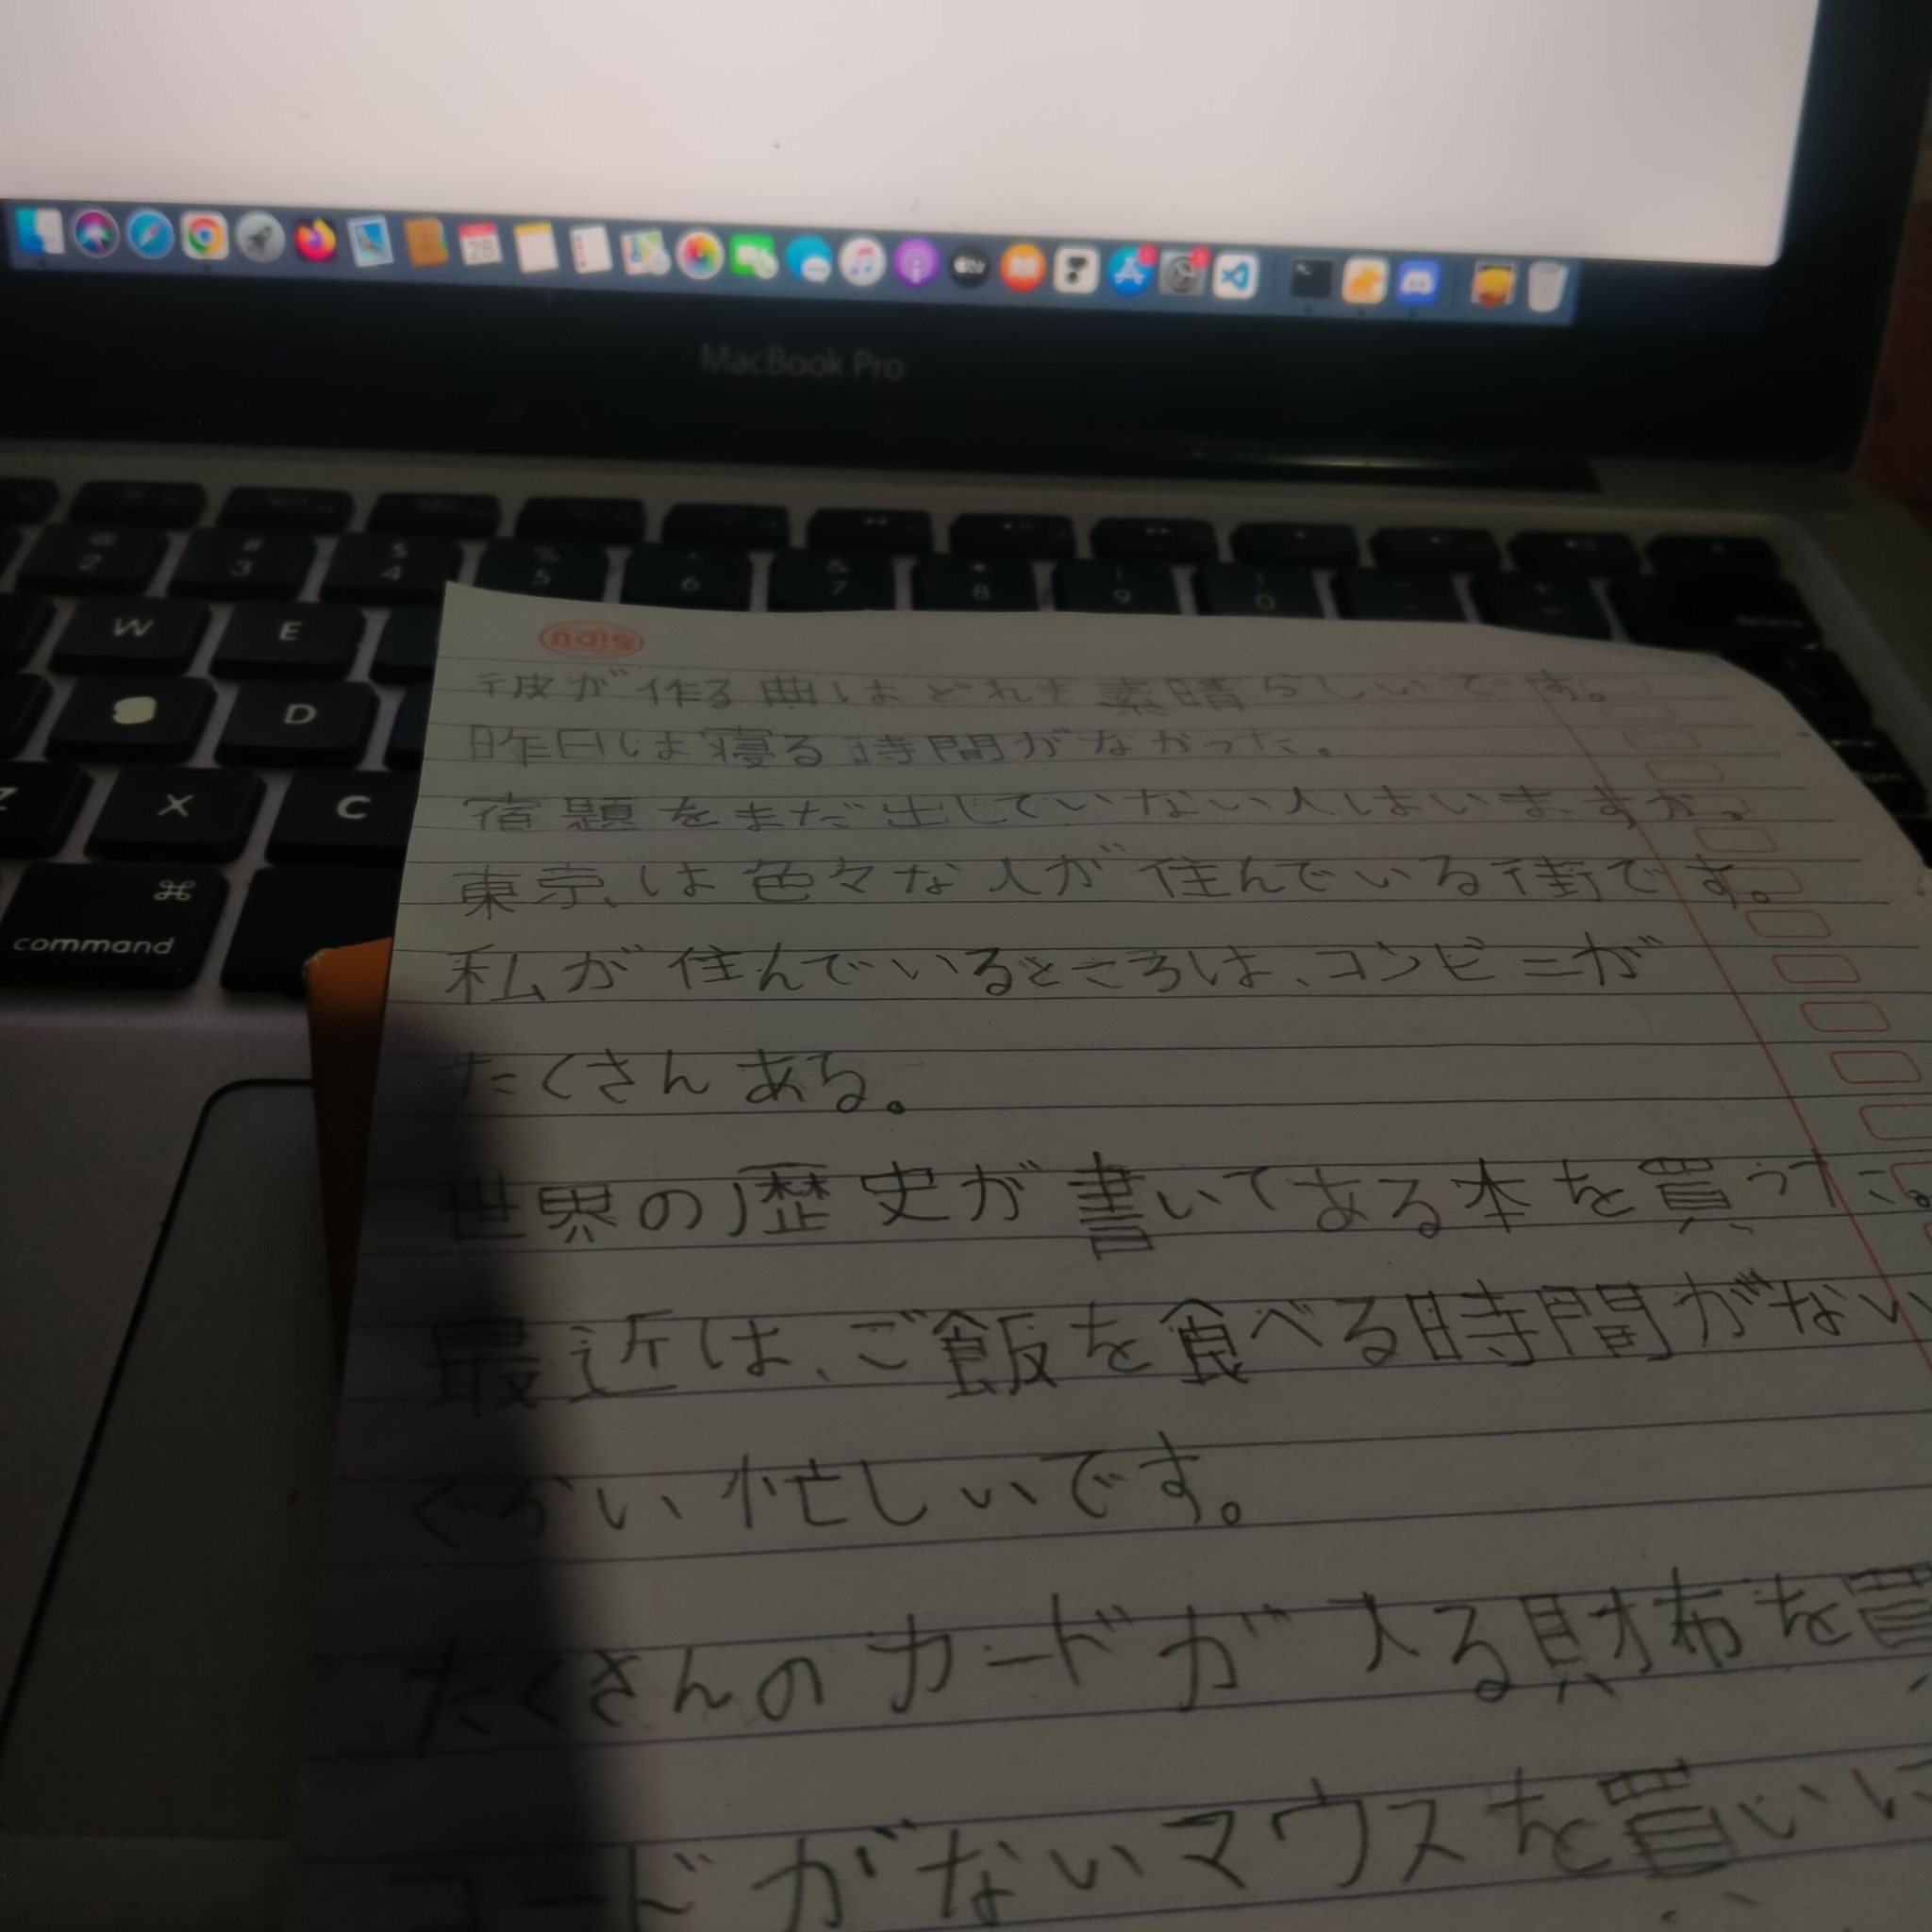 28
MacBook Pro
@ 2
# 3
$ 4
% 5
^ 6
& 7
* 8
( 9
) 0
delete
W
E
D
Z
X
C
⌘
command
彼が作る曲はどれも素晴らしいです。
昨日は寝る時間がなかった。
宿題をまだ出していない人はいますか。
東京は色々な人が住んでいる街です。
私が住んでいるところは、コンビニが
たくさんある。
世界の歴史が書いてある本を買うた。
最近は、ご飯を食べる時間がない
ぐらい忙しいです。
たくさんのカードが入る財布を買
コードがないマウスを買いに